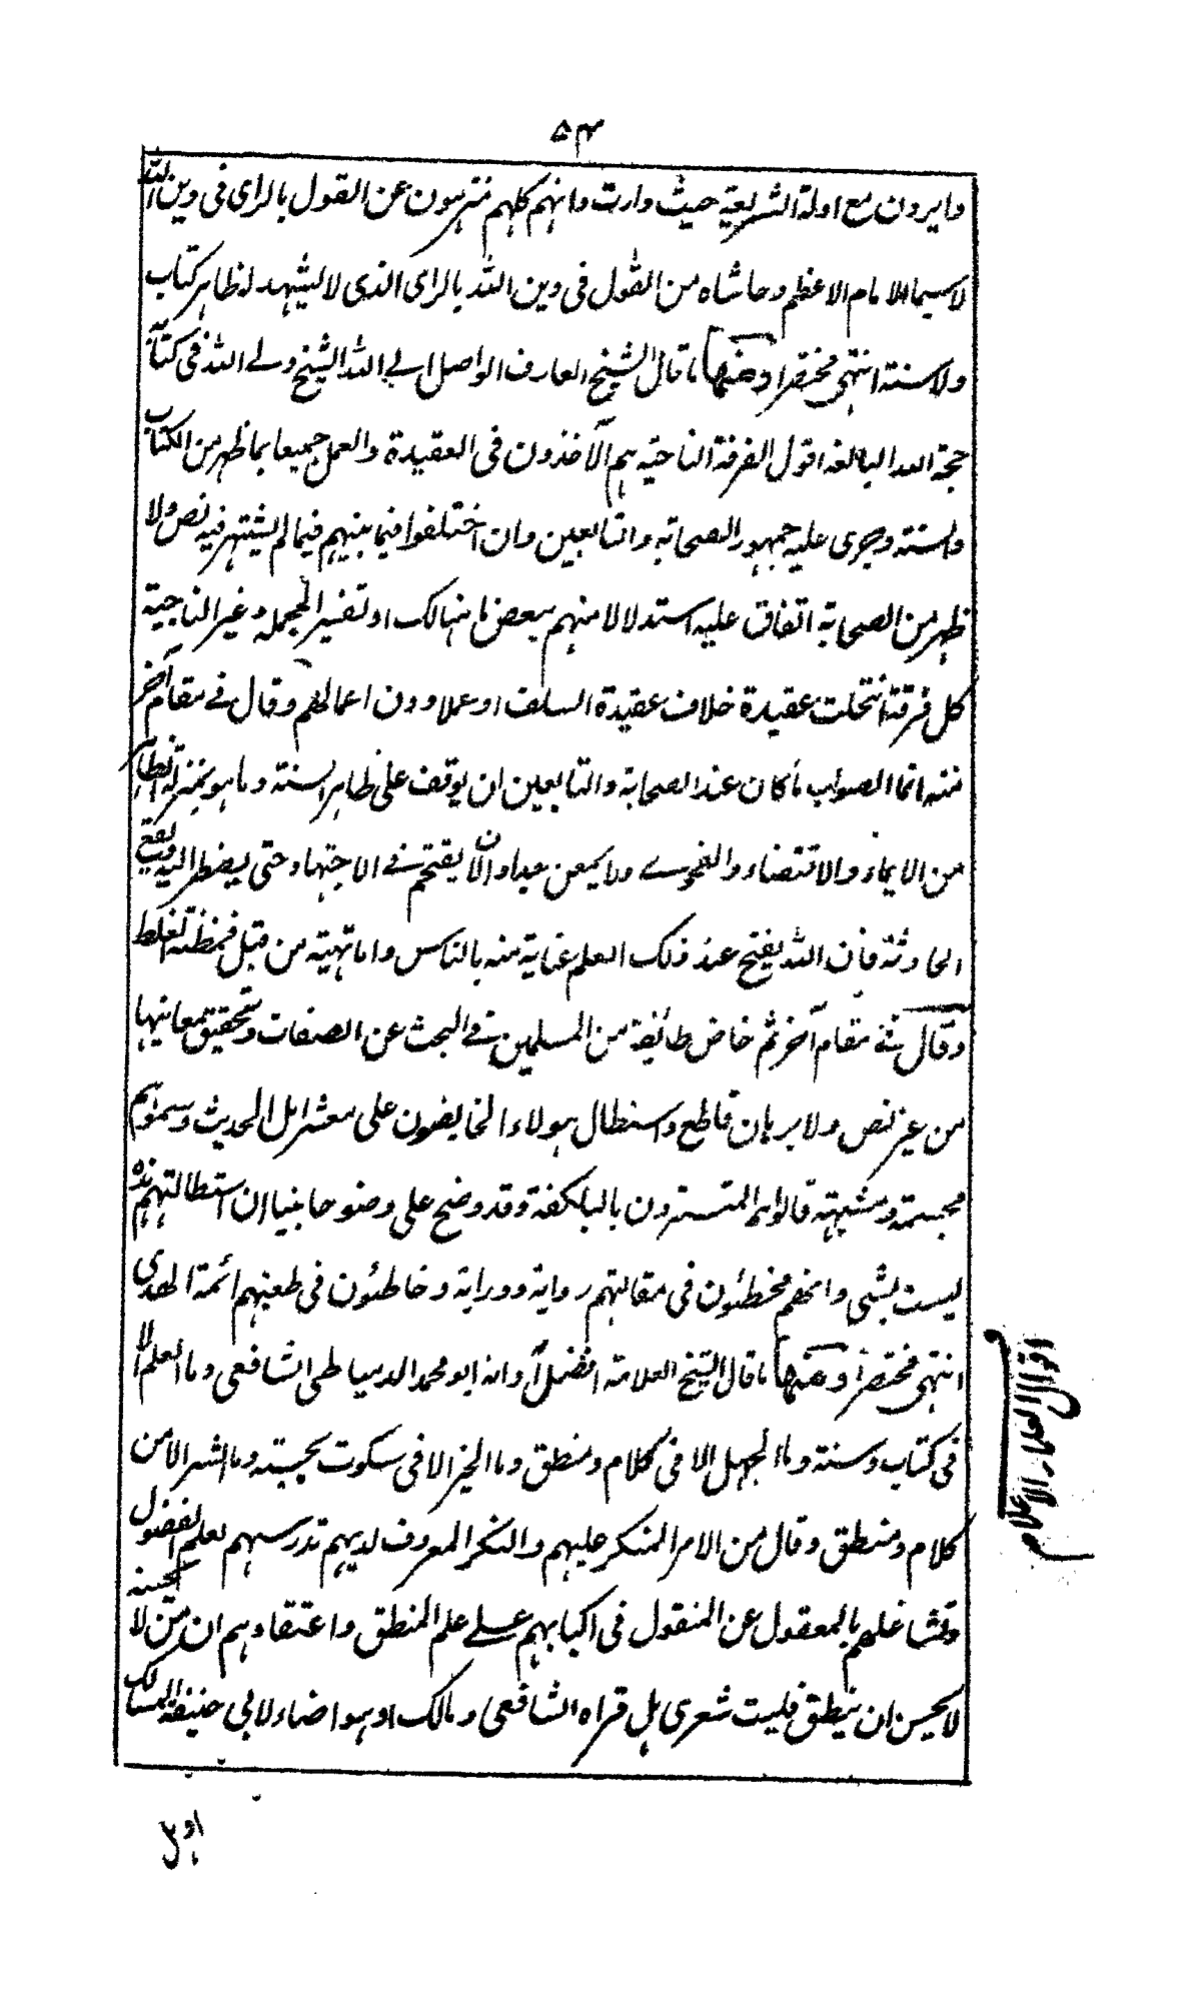 ۵۴
دايرون مع ادلة الشريعة حيث دارت وانهم كلهم منزهون عن القول بالراى فى دين الله
لاسيما الامام الاعظم وحاشاه من القول فى دين الله بالراى الذى لا يشهد له ظاهر كتاب
ولا سنة انتهى مختصرا ومنها ما قال الشيخ العارف الواصل الى الله الشيخ ولى الله فى كتاب
حجة الله البالغة اقول الفرقة الناجية هم الآخذون فى العقيدة والعمل جميعا بما ظهر من الكتاب
والسنة وجرى عليه جمهور الصحابة والتابعين وان اختلفوا فيما بينهم فيما لم يشتهر فيه نص ولا
ظهر من الصحابة اتفاق عليه استدلالا منهم ببعض ما هنالك او تفسير المجمله وغير الناجية
كل فرقة انتحلت عقيدة خلاف عقيدة السلف او عملا دون اعمالهم وقال فى مقام آخر
منه انما الصواب ما كان عند الصحابة والتابعين ان يوقف على ظاهر السنة وما هو بمنزلة الظاهر
من الايماء والاقتضاء والفحوى ولا يمعن جدا وان لا يقتحم فى الاجتهاد حتى يضطر اليه ويقع
الحادثة فان الله يفتح عند ذلك العلم عناية منه بالناس واما تهيئه من قبل فمظنة الغلط
وقال فى مقام آخر ثم خاض طائفة من المسلمين فى البحث عن الصفات وتحقيق معانيها
من غير نص ولا برهان قاطع واستطال هولاء الخايضون على معشر اهل الحديث وسموهم
مجسمة ومشبهة قالوا هم المتسترون بالبلكفة وقد وضح على وضوحا بينا ان استطالتهم هذه
ليست بشئ وانهم مخطئون فى مقالتهم رواية ودراية وخاطئون فى طعنهم ائمة الهدى
انتهى مختصرا ومنها ما قال الشيخ العلامة افضل آوانه ابو محمد الدمياطى الشافعى وما العلم الا
فى كتاب وسنة وما الجهل الا فى كلام ومنطق وما الخير الا فى سكوت بحسبة وما الشر الا من
كلام ومنطق وقال من الامر المنكر عليهم والنكر المعروف لديهم تدرسهم لعلم الفضول
وتشاغلهم بالمعقول عن المنقول فى اكبابهم على علم المنطق واعتقادهم ان من لا يحسنه
لا يحسن ان ينطق فليت شعرى هل قراه الشافعى ومالك او هو اضاء لابى حنيفة المسالك
او هل